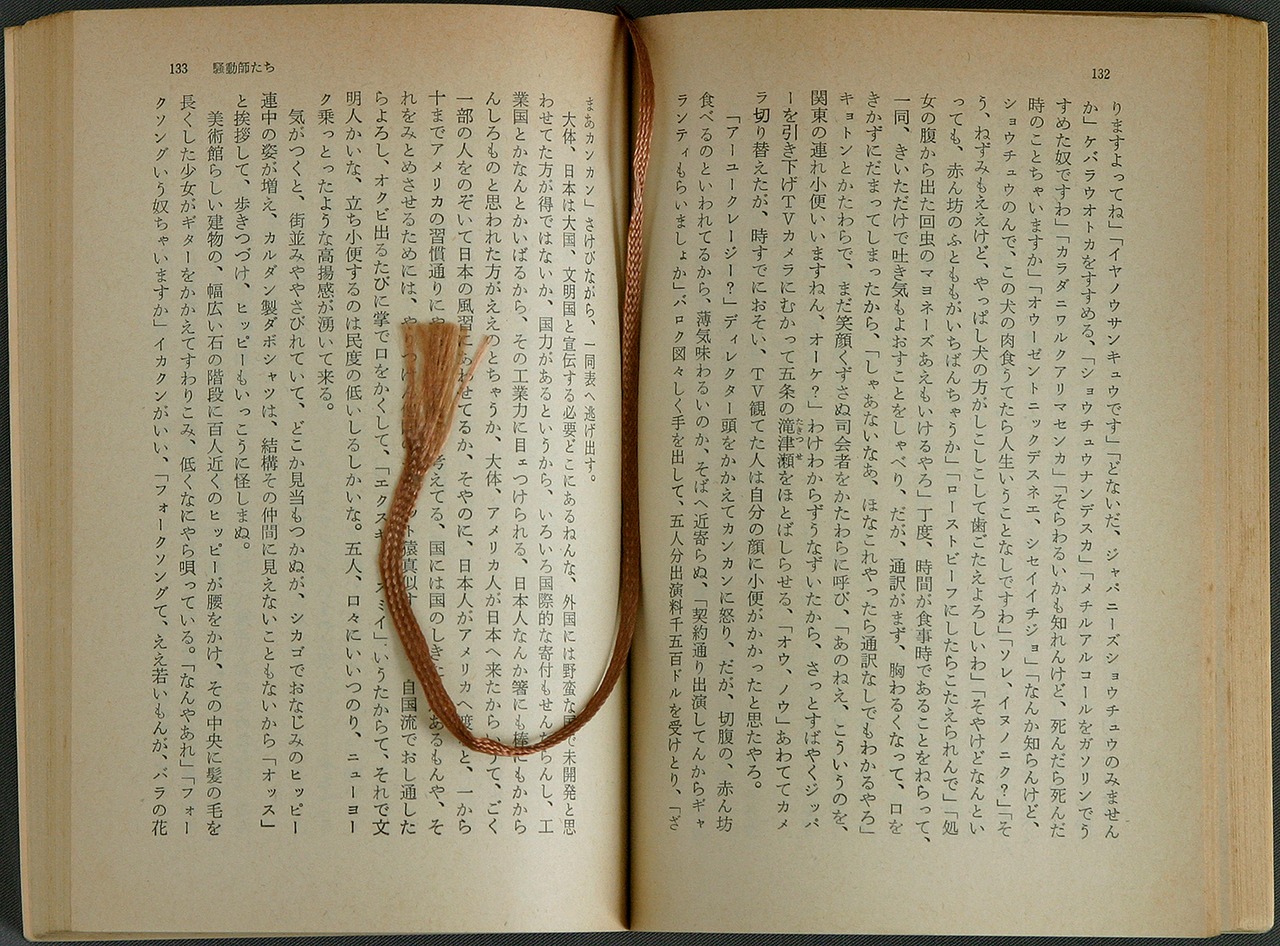 132
りますよってね」「イヤノウサンキュウです」「どないだ、ジャパニーズショウチュウのみません
か」ケバラウオトカをすすめる、「ショウチュウナンデスカ」「メチルアルコールをガソリンでう
すめた奴ですわ」「カラダニワルクアリマセンカ」「そらわるいかも知れんけど、死んだら死んだ
時のことちゃいますか」「オウーゼントニックデスネエ、シセイイチジョ」「なんか知らんけど、
ショウチュウのんで、この犬の肉食うてたら人生いうことなしですわ」「ソレ、イヌノニク?」「そ
う、ねずみもええけど、やっぱし犬の方がしこしこして歯ごたえよろしいわ」「そやけどなんとい
っても、赤ん坊のふとももがいちばんちゃうか」「ローストビーフにしたらこたえられんで」「処
女の腹から出た回虫のマヨネーズあえもいけるやろ」丁度、時間が食事時であることをねらって、
一同、きいただけで吐き気もよおすことをしゃべり、だが、通訳がまず、胸わるくなって、口を
きかずにだまってしまったから、「しゃあないなあ、ほなこれやったら通訳なしでもわかるやろ」
キョトンとかたわらで、まだ笑顔くずさぬ司会者をかたわらに呼び、「あのねえ、こういうのを、
関東の連れ小便いいますねん、オーケ?」わけわからずうなずいたから、さっとすばやくジッパ
ーを引き下げTVカメラにむかって五条の滝津瀬をほとばしらせる、「オウ、ノウ」あわててカメ
たきつせ
ラ切り替えたが、時すでにおそい、TV観てた人は自分の顔に小便がかかったと思たやろ。
「アーユークレージー?」ディレクター頭をかかえてカンカンに怒り、だが、切腹の、赤ん坊
食べるのといわれてるから、薄気味わるいのか、そばへ近寄らぬ、「契約通り出演してんからギャ
ランティもらいましょか」バロク図々しく手を出して、五人分出演料千五百ドルを受けとり、「ざ
133 騒動師たち
まあカンカン」さけびながら、一同表へ逃げ出す。
大体、日本は大国、文明国と宣伝する必要どこにあるねんな、外国には野蛮な で未開発と思
わせてた方が得ではないか、国力があるというから、いろいろ国際的な寄付もせん らんし、工
業国とかなんとかいばるから、その工業力に目ェつけられる、日本人なんか箸にも棒にもかから
んしろものと思われた方がええのとちゃうか、大体、アメリカ人が日本へ来たから うて、ごく
一部の人をのぞいて日本の風習にあわせてるか、そやのに、日本人がアメリカへ渡 と、一から
十までアメリカの習慣通りにや 考えてる、国には国のしき あるもんや、そ
れをみとめさせるためには、や 猿真似す 自国流でおし通した
らよろし、オクビ出るたびに掌で口をかくして、「エクスキ ズミイ」いうたからて、それで文
明人かいな、立ち小便するのは民度の低いしるしかいな。五人、口々にいいつのり、ニューヨー
ク乗っとったような高揚感が湧いて来る。
気がつくと、街並みややさびれていて、どこか見当もつかぬが、シカゴでおなじみのヒッピー
連中の姿が増え、カルダン製ダボシャツは、結構その仲間に見えないこともないから「オッス」
と挨拶して、歩きつづけ、ヒッピーもいっこうに怪しまぬ。
美術館らしい建物の、幅広い石の階段に百人近くのヒッピーが腰をかけ、その中央に髪の毛を
長くした少女がギターをかかえてすわりこみ、低くなにやら唄っている。「なんやあれ」「フォー
クソングいう奴ちゃいますか」イカクンがいい、「フォークソングて、ええ若いもんが、バラの花